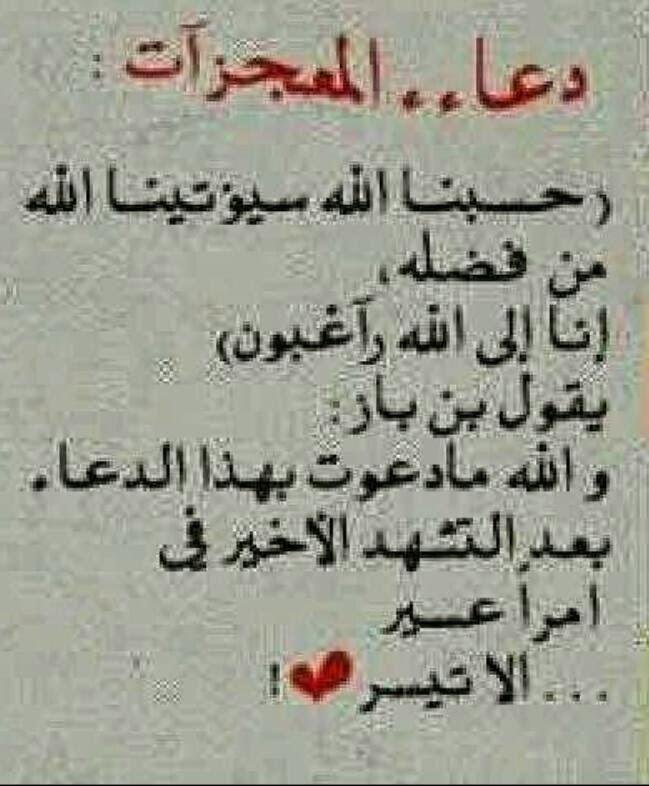 دعاء.. المعجزآت :
(حسبنا الله سيؤتينا الله
من فضله،
إنا إلى الله رآغبون)
يقول بن باز:
و الله مادعوت بهذا الدعاء
بعد التشهد الأخير في
امراً عسير
... الا تيسر❤!